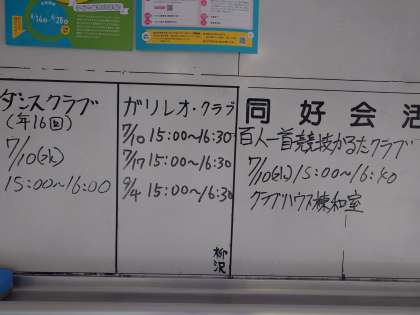 ダンスクラブ
(年16回)
7/10(水)
15:00〜16:00
ガリレオ・クラブ
7/10 15:00〜16:30
7/17 15:00〜16:30
9/4 15:00〜16:30
柳沢
同好会活
百人一首競技かるたクラブ
7/10(水)15:00〜16:40
クラブハウス棟和室